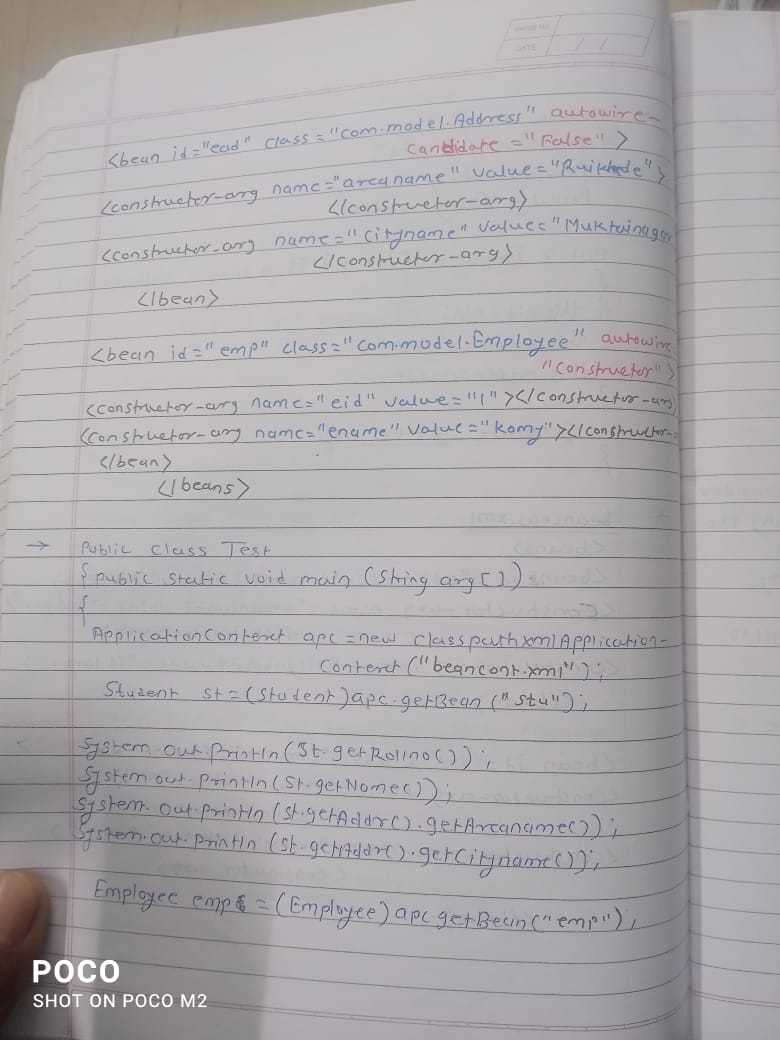 PAGE No.
DATE / /
<bean id="ead" class="com.model.Address" autowire-
candidate="False">
<constructor-arg name="areaname" value="Ruikhede">
</constructor-arg>
<constructor-arg name="cityname" value="Muktainagar
</constructor-arg>
</bean>
<bean id="emp" class="com.model.Employee" autowire
"constructor">
<constructor-arg name="eid" value="1"></constructor-arg
<constructor-arg name="ename" value="komy"></constructor-
</bean>
</beans>
→ Public class Test
{ public static void main (String arg[])
{
ApplicationContext apc = new ClasspathxmlApplication-
Context ("beancont.xml");
Student st = (Student) apc.getBean ("stu");
System.out.Println (St.getRollno());
System.out.println (St.getName());
System.out.println (St.getAddr().getAreaname());
System.out.println (St.getAddr().getCityname());
Employee emp = (Employee) apc getBean ("emp");
POCO
SHOT ON POCO M2